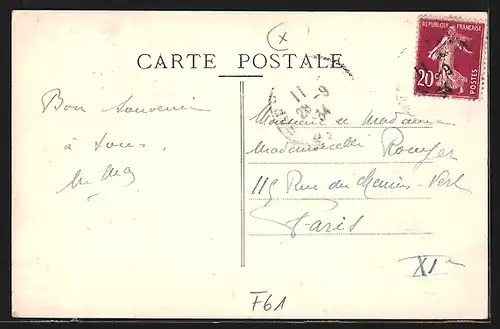 CARTE POSTALE
REPUBLIQUE FRANÇAISE
20c
POSTES
11
28 - 9
34
Bon Souvenir
à tous
Monsieur et Madame
Mademoiselle Rouyer
115 Rue du Chemin-Vert
Paris
XIe
F61